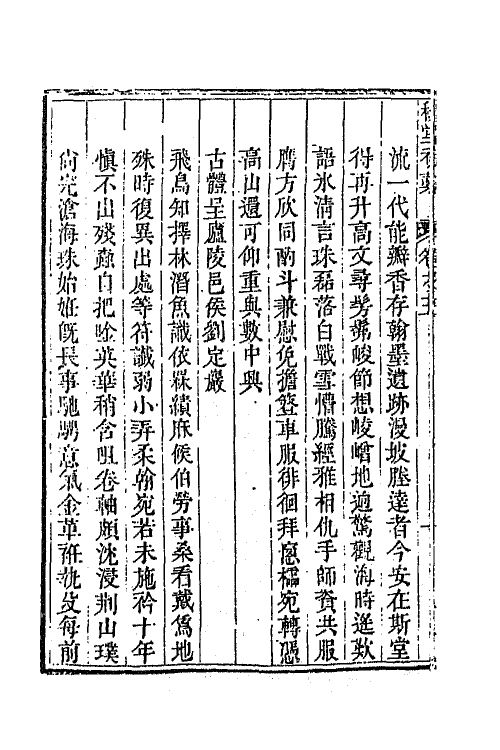 流一代能瓣香存翰墨遺跡漫坡塍達者今安在斯堂
得再升高文尋勞躅峻節想崚嶒地逈驚觀海時遙歎
語氷清言珠磊落白戰雪懵騰經雅相仇手師賓共服
膺方欣同酌斗兼慰免擔簦車服徘徊拜窓櫺宛轉憑
高山還可仰重與數中興
古體呈廬陵邑侯劉定巖
飛鳥知擇林潛魚識依槑績麻候伯勞事桑看戴鵀地
殊時復異出處等符讖弱小弄柔翰宛若未施衿十年
愼不出殘蟫自把唫英華稍含咀卷軸頗沈浸荆山璞
尙完滄海珠始妊旣長事馳騁意氣金革衽執殳每前